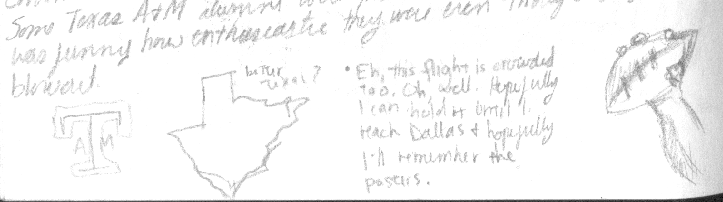 Some Texas A&M alumni
was funny how enthuseastic they were even
blowout.
better texas?
ATM
• Eh, this flight is crowded
too. Oh, well. Hopefully
I can hold it until I
reach Dallas & hopefully
I'll remember the
posters.